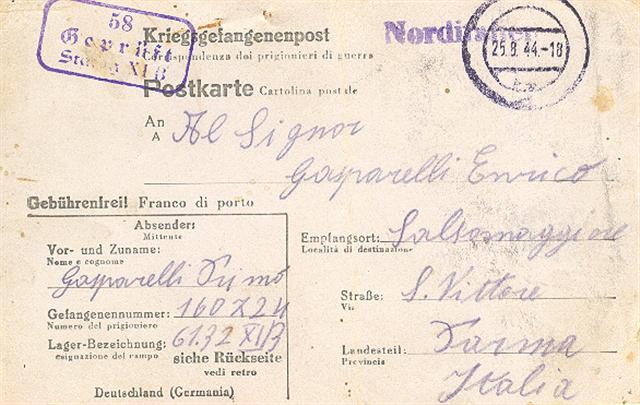 58
Geprüft
Stalag XI B
Norditalien
25.8.44.-18
Kriegsgefangenenpost
Corrispondenza dei prigionieri di guerra
Postkarte Cartolina postale
An Al Signor
A
Gasparelli Enrico
Gebührenfrei! Franco di porto
Absender:
Mittente
Vor- und Zuname:
Nome e cognome
Gasparelli Primo
Gefangenennummer: 160
Numero del prigioniero
Lager-Bezeichnung: 6132 XI/B
esignazione del campo
siehe Rückseite
vedi retro
Deutschland (Germania)
Empfangsort: Salsomaggiore
Località di destinazione
Straße: S. Vittore
Via
Landesteil: Parma
Provincia
Italia